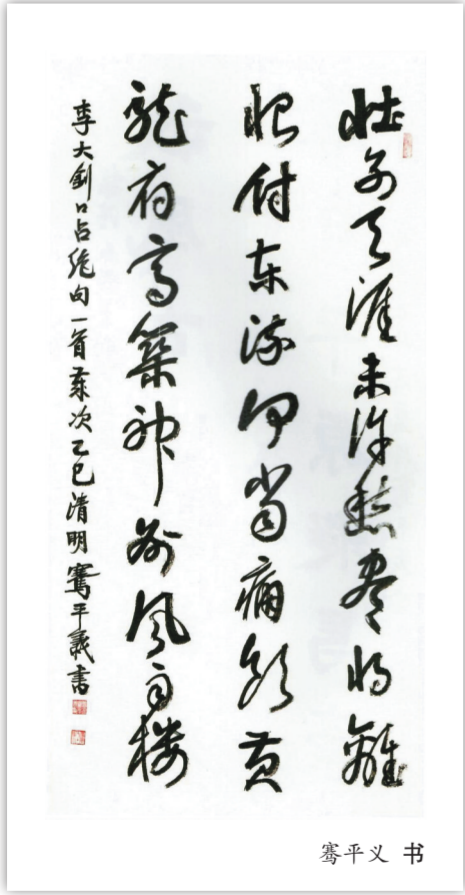 壮别天涯未许愁尽将離
恨付东流何当痛饮黄
龍府高築神州风雨楼
李大釗口占绝句一首歲次乙巳清明骞平義书
骞平义 书